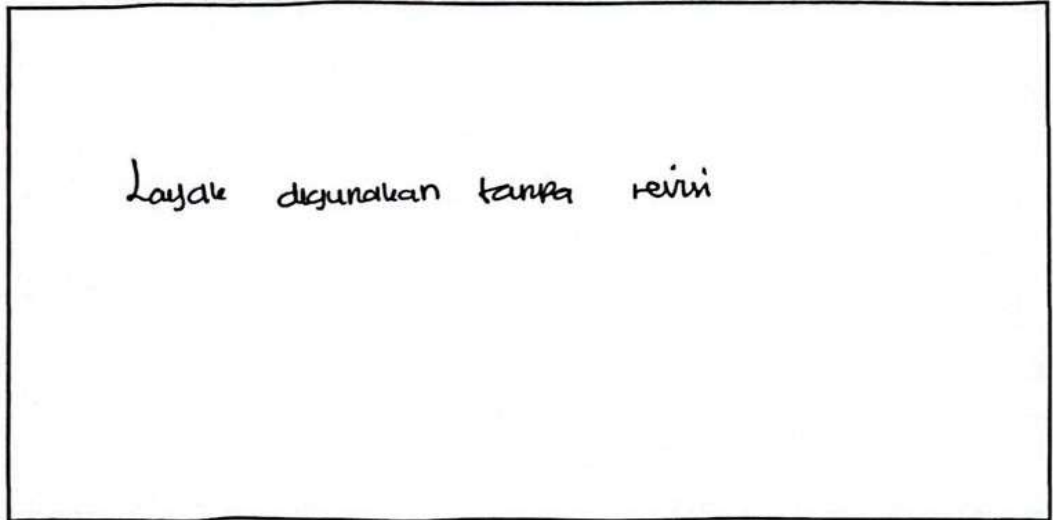 Layak digunakan tanpa revisi